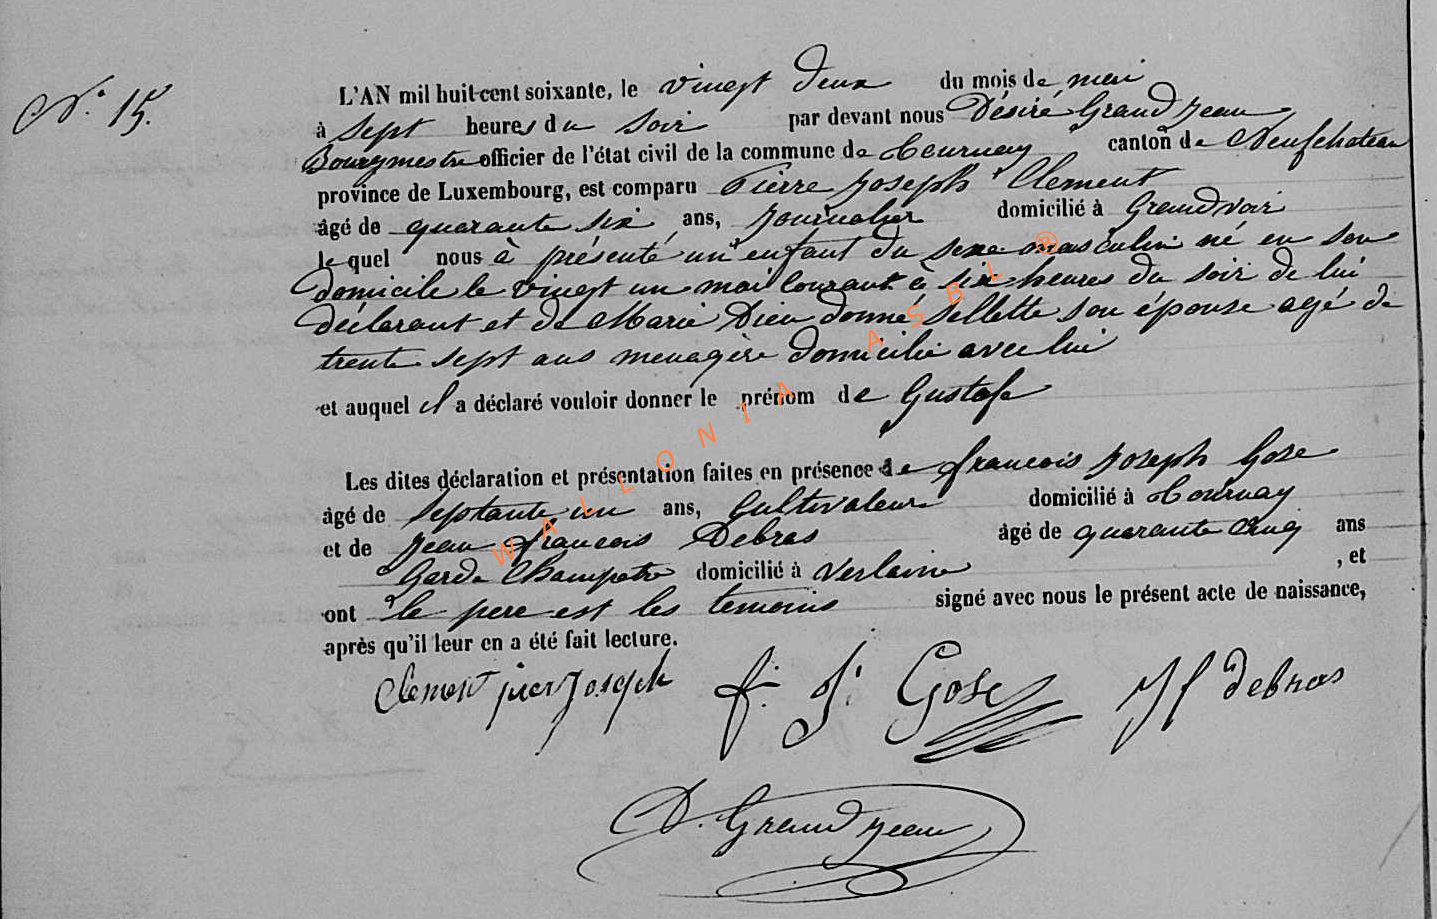 N.° 15.
L'AN mil huit cent soixante, le vingt deux du mois de mai
à sept heures du soir par devant nous Désiré Grandjean
Bourgmestre officier de l'état civil de la commune de Tournay canton de Neufchateau
province de Luxembourg, est comparu Pierre Joseph Clement
âgé de quarante six ans, Journalier domicilié à Grandvoir
lequel nous à présenté un enfant du sexe masculin né en son
domicile le vingt un mai courant à six heures du soir de lui
déclarant et de Marie Dieu donné Sellette son épouse agé de
trente sept ans menagère domicilié avec lui
et auquel il a déclaré vouloir donner le prénom de Gustafe
Les dites déclaration et présentation faites en présence de francois Joseph Gose
âgé de septante un ans, Cultivateur domicilié à Tournay
et de Jean francois Debras âgé de quarante cinq ans
Garde Champetre domicilié à Verlaine , et
ont le pere est les temoins signé avec nous le présent acte de naissance,
après qu'il leur en a été fait lecture.
Clement pier Joseph f. J. Gose J f debras
D. Grandjean
WALLONIA ASBL ®